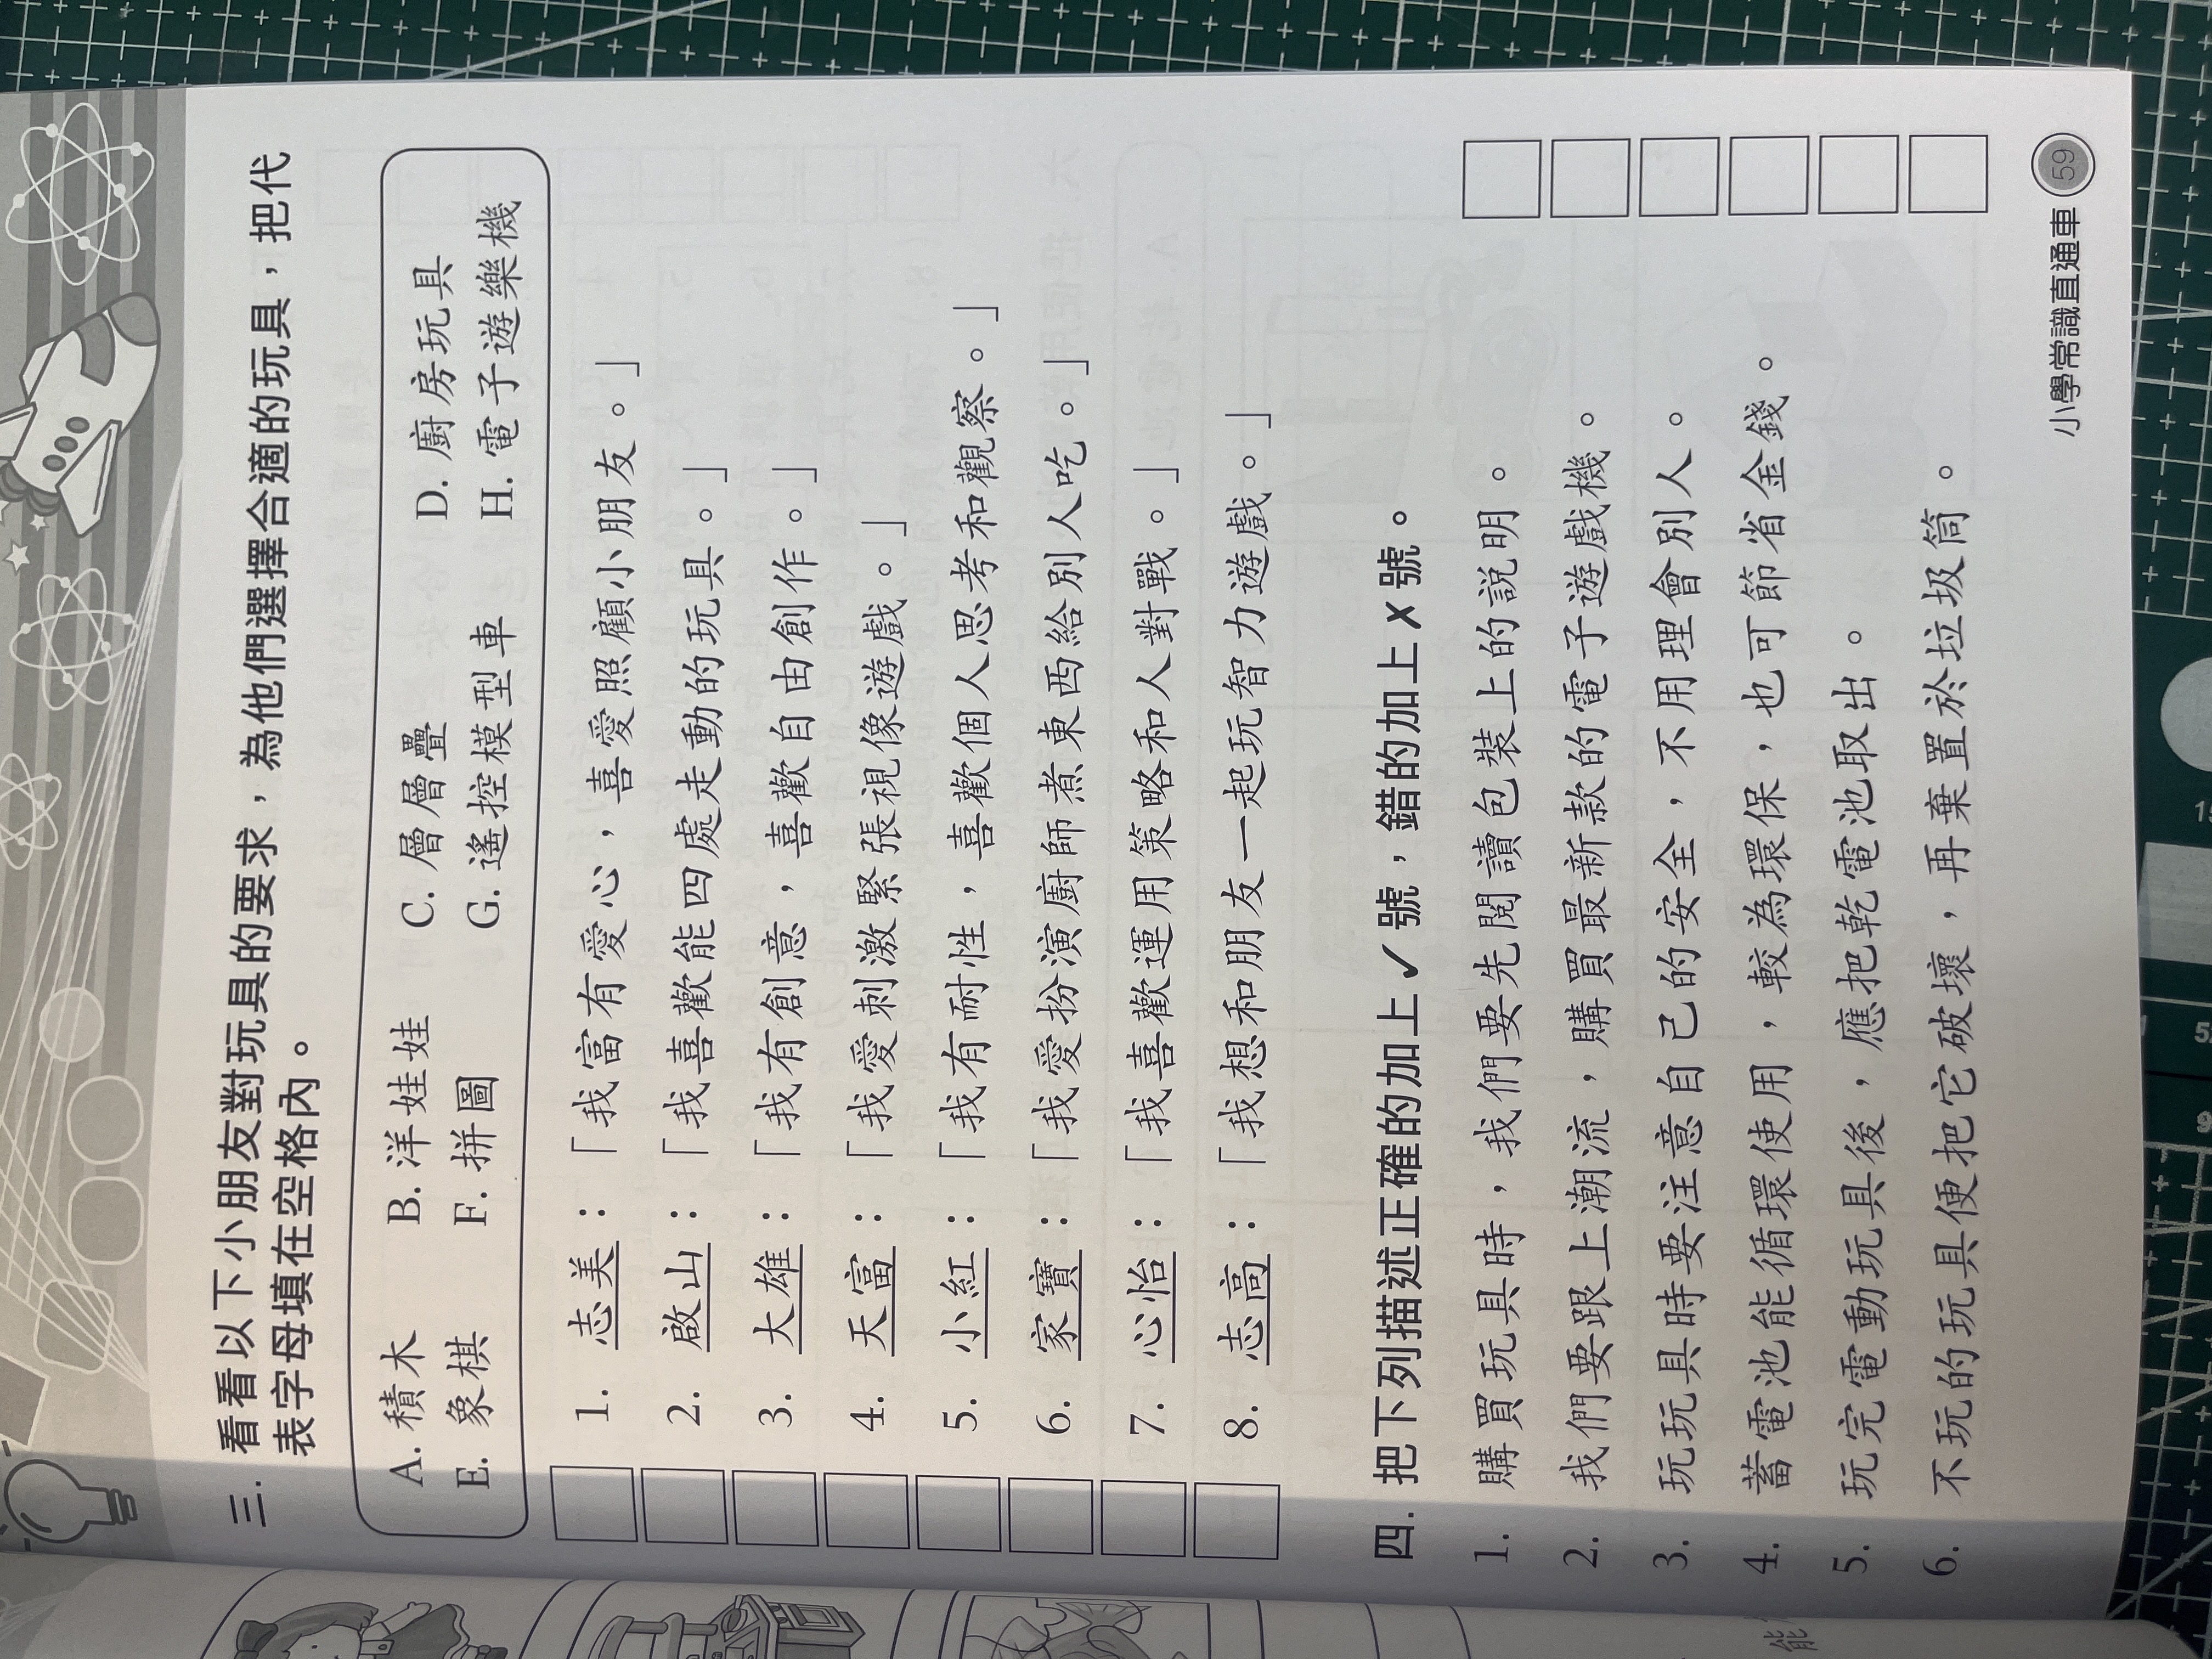 三. 看看以下小朋友對玩具的要求，為他們選擇合適的玩具，把代
表字母填在空格內。
A. 積木 B. 洋娃娃 C. 層層疊 D. 廚房玩具
E. 象棋 F. 拼圖 G. 遙控模型車 H. 電子遊樂機
1. 志美：「我富有愛心，喜愛照顧小朋友。」
2. 啟山：「我喜歡能四處走動的玩具。」
3. 大雄：「我有創意，喜歡自由創作。」
4. 天富：「我愛刺激緊張視像遊戲。」
5. 小紅：「我有耐性，喜歡個人思考和觀察。」
6. 家寶：「我愛扮演廚師煮東西給別人吃。」
7. 心怡：「我喜歡運用策略和人對戰。」
8. 志高：「我想和朋友一起玩智力遊戲。」
四. 把下列描述正確的加上✓號，錯的加上✗號。
1. 購買玩具時，我們要先閱讀包裝上的說明。
2. 我們要跟上潮流，購買最新款的電子遊戲機。
3. 玩玩具時要注意自己的安全，不用理會別人。
4. 蓄電池能循環使用，較為環保，也可節省金錢。
5. 玩完電動玩具後，應把乾電池取出。
6. 不玩的玩具便把它破壞，再棄置於垃圾筒。
小學常識直通車 59